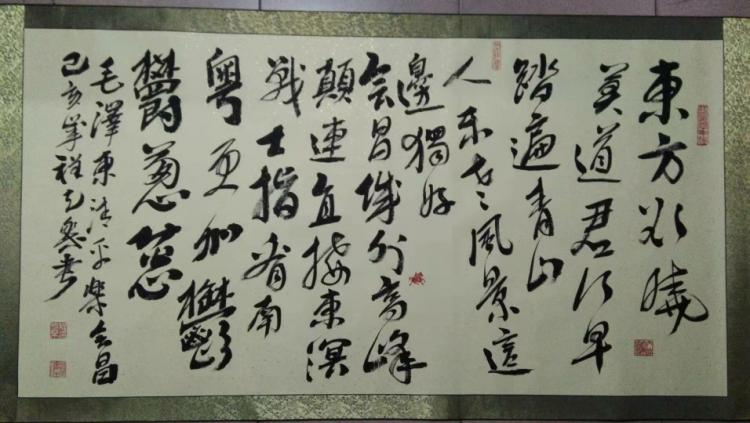 東方欲曉
莫道君行早
踏遍青山
人未老風景這
邊獨好
会昌城外高峰
顛連直接東溟
戰士指看南
粵更加鬱
欝葱葱
毛澤東清平樂会昌
己亥歲祥書